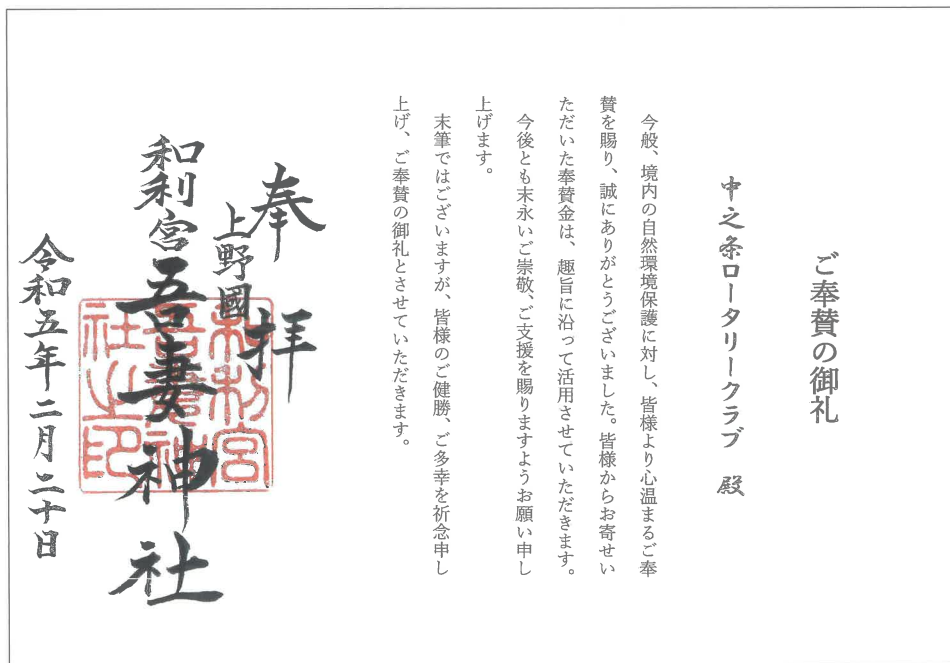 ご奉賛の御礼
中之条ロータリークラブ　殿
今般、境内の自然環境保護に対し、皆様より心温まるご奉
賛を賜り、誠にありがとうございました。皆様からお寄せい
ただいた奉賛金は、趣旨に沿って活用させていただきます。
今後とも末永いご崇敬、ご支援を賜りますようお願い申し
上げます。
末筆ではございますが、皆様のご健勝、ご多幸を祈念申し
上げ、ご奉賛の御礼とさせていただきます。
奉拝
上野國
和利宮吾妻神社
和利宮
吾妻神
社之印
令和五年二月二十日